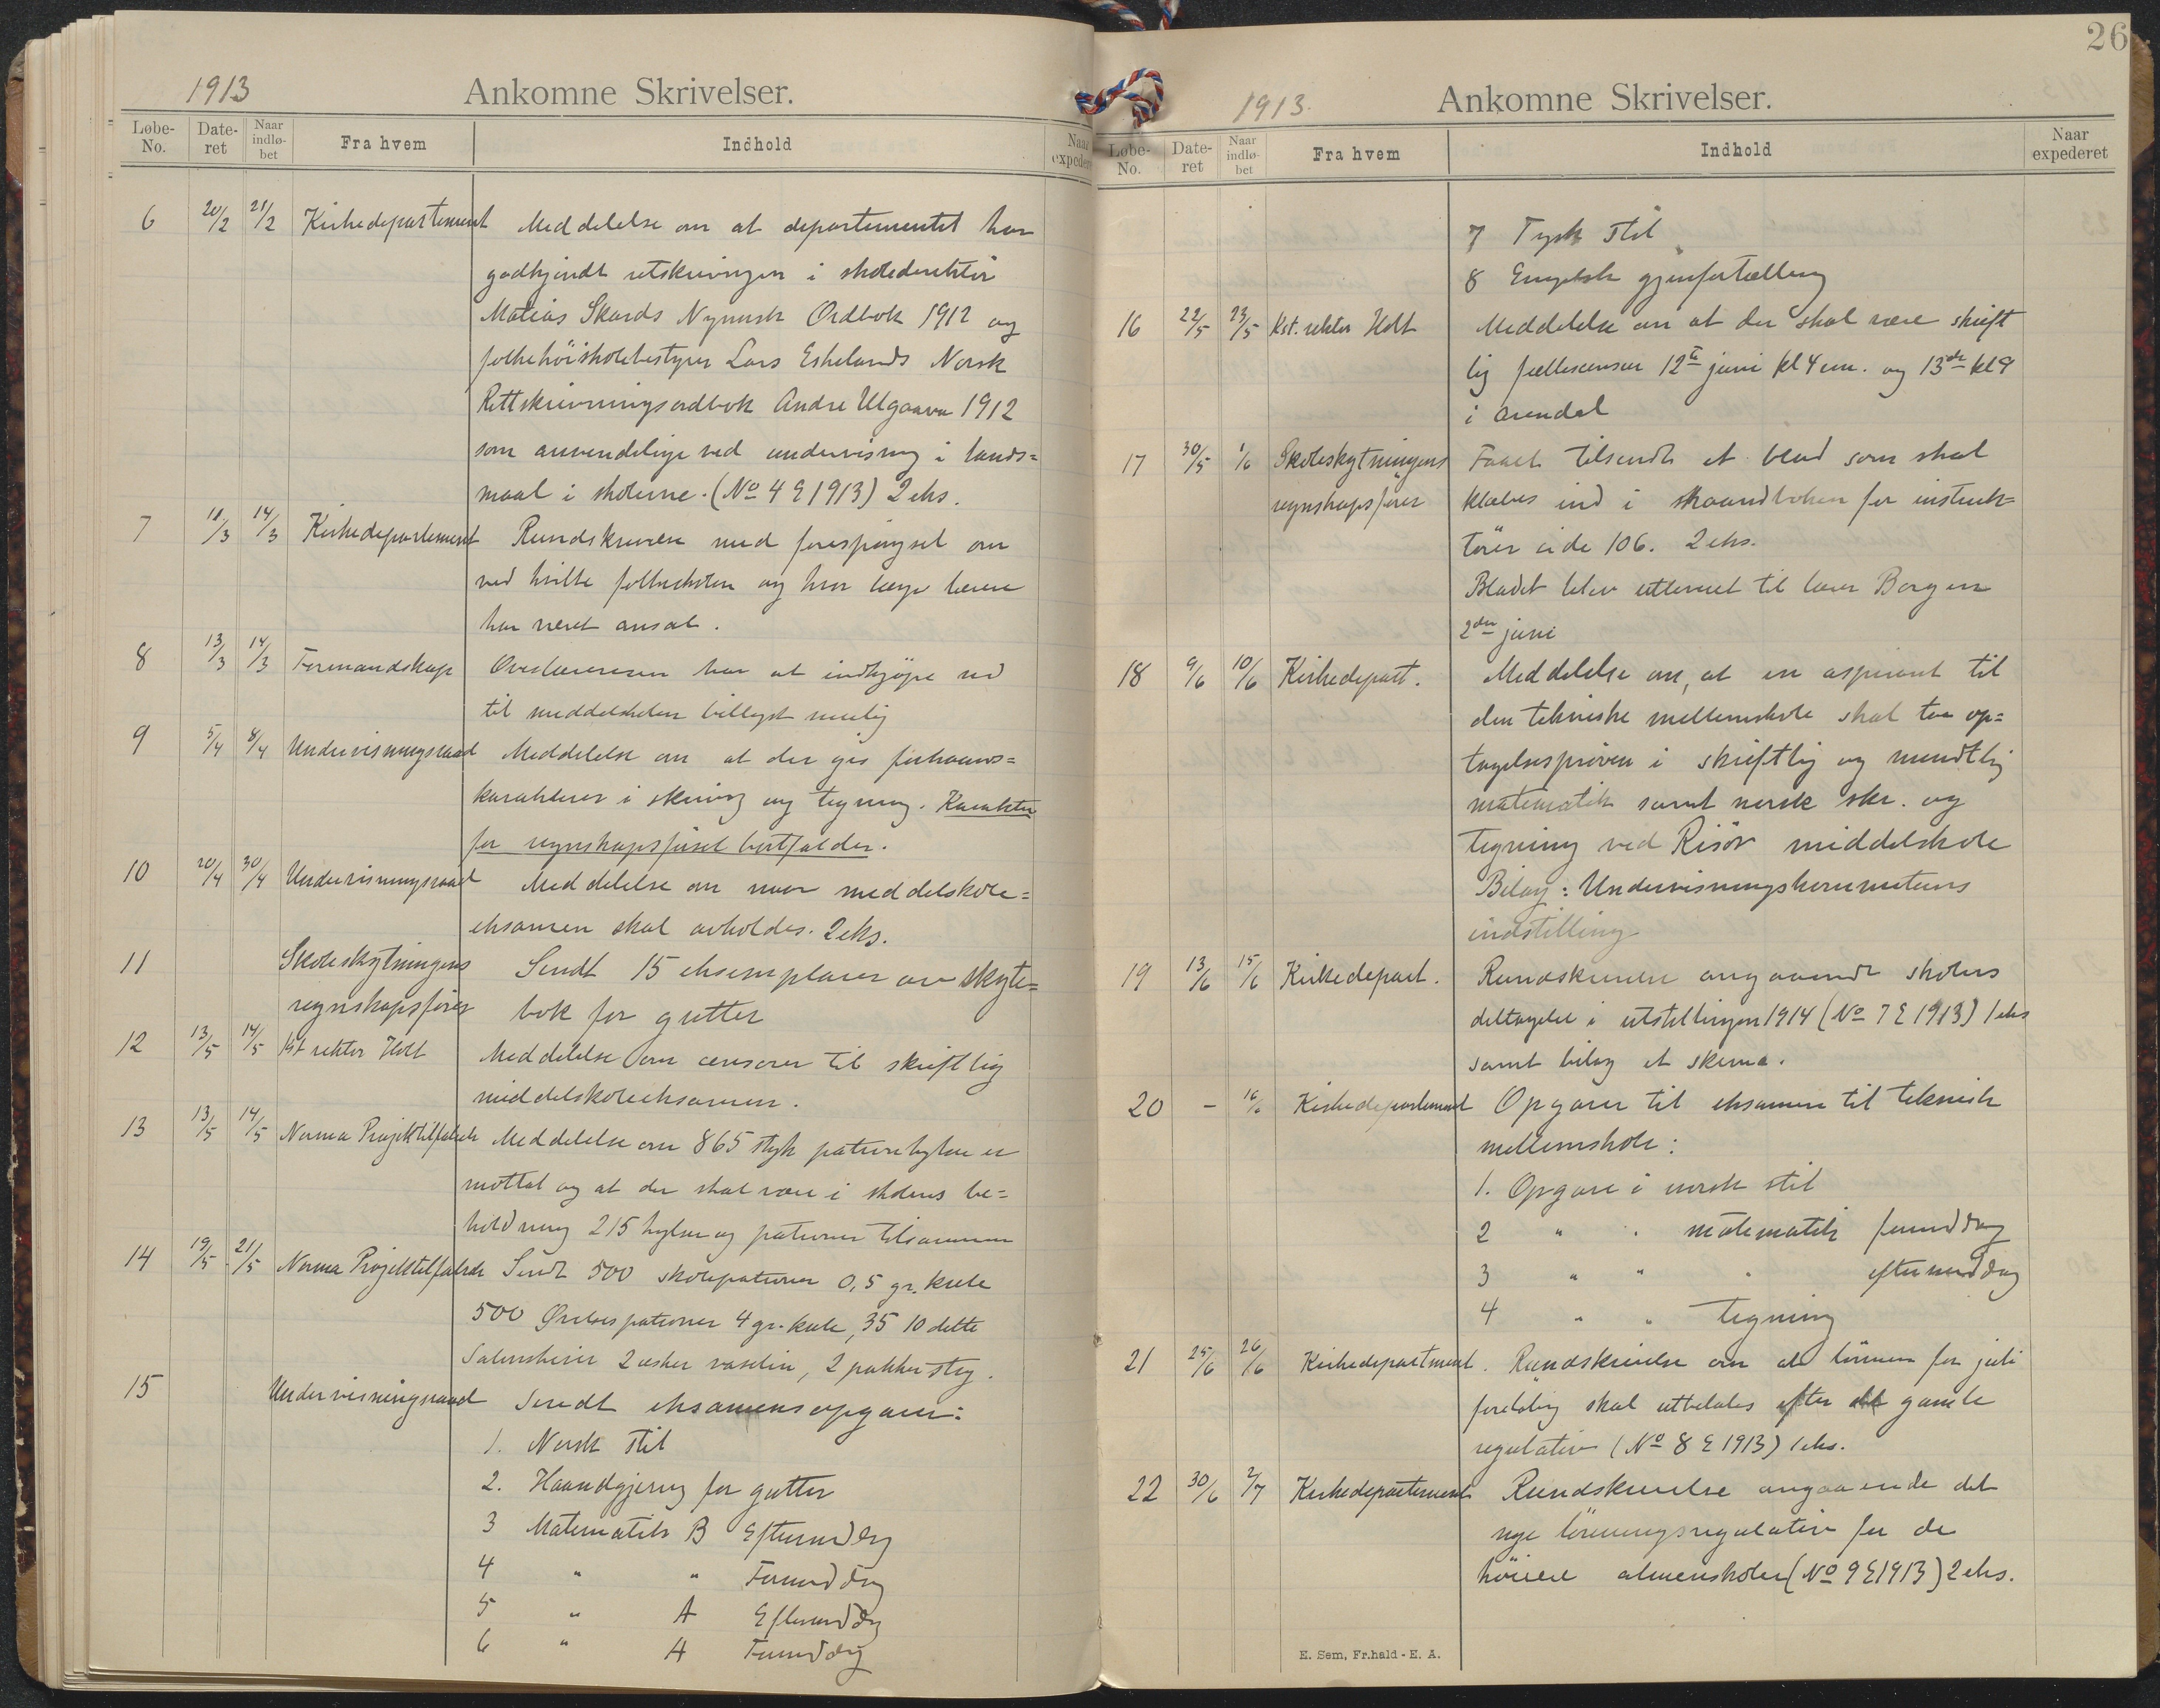 1913
Ankomne Skrivelser.
Løbe-No. Date-ret Naar indlø-bet Fra hvem Indhold Naar expederet
6 20/2 21/2 Kirkedepartement Meddelelse om at departementet har
godkjendt retskrivningen i skoledirektör
Matias Skards Nynorsk Ordbok 1912 og
folkehöiskolebestyrer Lars Eskelands Norsk
Rettskrivningsordbok Andre Utgaava 1912
som anvendelige ved undervisning i lands=
maal i skolerne. (No 4 E 1913) 2 eks.
7 11/3 14/3 Kirkedepartement Rundskrivelse med forespörgsel om
ved hvilke folkeskoler og hvor længe lærerne
har været ansat.
8 13/3 14/3 Formandskap Overlæreren har at indkjöpe ved
til middelskolen billigst mulig
9 5/4 8/4 Undervisningsraad Meddelelse om at der gis forhaands=
karakterer i skrivning og tegning. Karakter
for regnskapsförsel bortfalder.
10 20/4 30/4 Undervisningsraad Meddelelse om naar middelskole=
eksamen skal avholdes. 2 eks.
11 Skoleskytningens Sendt 15 eksemplarer av skyte=
regnskapsförer bok for gutter
12 13/5 14/5 Kst rektor Holt Meddelelse om censorer til skriftlig
middelskoleeksamen.
13 13/5 14/5 Norma Projektilfabrik Meddelelse om 865 styk patronhylser er
mottat og at der skal være i skolens be=
holdning 215 hylser og patroner tilsammen
14 19/5 21/5 Norma Projektilfabrik Sendt 500 skolepatroner 0,5 gr. kule
500 Övelsespatroner 4 gr. kule, 35 10 delte
Salonskiver 2 æsker vaselin, 2 pakker stry.
15 Undervisningsraad Sendt eksamensopgaver:
1. Norsk Stil
2. Haandgjerning for gutter
3 Matematik B Eftermiddag
4 " " Formiddag
5 " A Eftermiddag
6 " A Formiddag
26
1913.
Ankomne Skrivelser.
Løbe-No. Date-ret Naar indlø-bet Fra hvem Indhold Naar expederet
7 Tysk Stil
8 Engelsk gjenfortælling
16 22/5 23/5 Kst. rektor Holt Meddelelse om at der skal være skrift
lig fællescensur 12te juni kl 4 em. og 13de kl 9
i Arendal
17 30/5 1/6 Skoleskytningens Faaet tilsendt et blad som skal
regnskapsförer klæbes ind i haandboken for instruk=
törer side 106. 2 eks.
Bladet blev utleveret til lærer Borgen
2den juni
18 9/6 10/6 Kirkedepart. Meddelelse om, at en aspirant til
den tekniske mellemskole skal ta op=
tagelsesprøven i skriftlig og mundtlig
matematik samt norsk skr. og
tegning ved Risör middelskole
Bilag: Undervisningskommiteens
indstilling
19 13/6 15/6 Kirkedepart. Rundskrivelse angaaende skolers
deltagelse i utstillingen 1914 (No 7 E 1913) 1 eks
samt bilag et skema.
20 - 16/6 Kirkedepartement Opgaver til eksamen til teknisk
mellemskole:
1. Opgave i norsk stil
2 " " matematik formiddag
3 " " " eftermiddag
4 " " tegning
21 25/6 26/6 Kirkedepartement. Rundskrivelse om at lönnen for juli
forelöbig skal utbetales efter gamle
regulativ (No 8 E 1913) 1 eks.
22 30/6 2/7 Kirkedepartement Rundskrivelse angaaende det
nye lönningsregulativ for de
höiere almenskoler (No 9 E 1913) 2 eks.
E. Sem, Fr.hald - E. A.